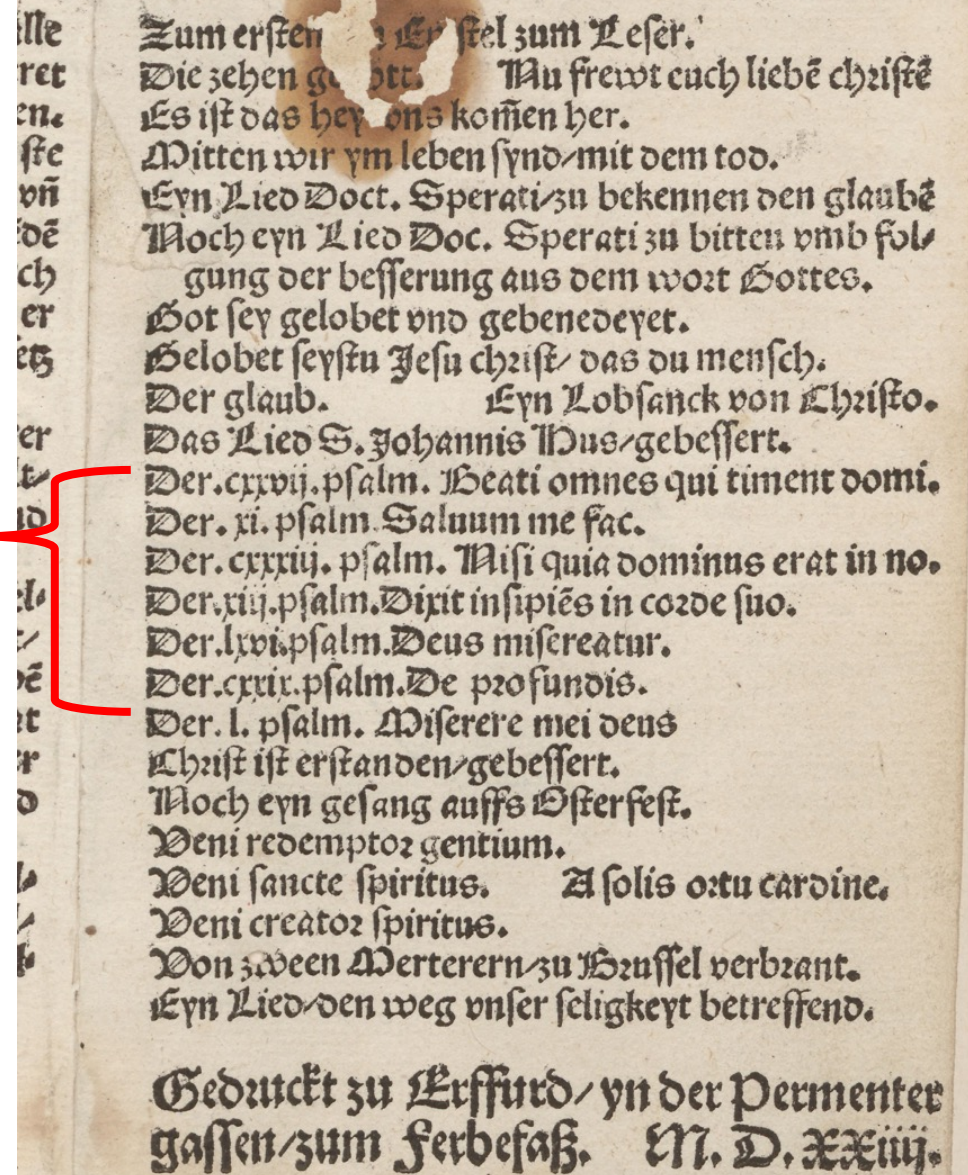 lle
ret
en.
ste
vñ
dē
ch
er
etz
er
lt/
nd
el/
r/
pē
at
er
d
Zum ersten stel zum Leser.
Die zehen Nu frewt euch liebē christē
Es ist das hey ons kom̄en her.
Mitten wir ym leben synd/mit dem tod.
Eyn Lied Doct. Sperati/zu bekennen den glaubē
Noch eyn Lied Doc. Sperati zu bitten vmb fol/
gung der besserung aus dem wort Gottes.
Got sey gelobet vnd gebenedeyet.
Gelobet seystu Jesu christ/ das du mensch.
Der glaub. Eyn Lobsanck von Christo.
Das Lied S. Johannis Hus/gebessert.
Der.cxxvij.psalm. Beati omnes qui timent domi.
Der. xi. psalm. Saluum me fac.
Der. cxxxiij. psalm. Nisi quia dominus erat in no.
Der.xiij.psalm.Dixit insipiēs in corde suo.
Der.lxvi.psalm.Deus misereatur.
Der.cxxix.psalm.De profundis.
Der. l. psalm. Miserere mei deus
Christ ist erstanden/gebessert.
Noch eyn gesang auffs Osterfest.
Veni redemptor gentium.
Veni sancte spiritus. A solis ortu cardine.
Veni creator spiritus.
Von zween Merterern/zu Brussel verbrant.
Eyn Lied/den weg vnser seligkeyt betreffend.
Gedruckt zu Erffurd/ yn der Permenter
gassen/zum Ferbefaß. M. D. XXiiij.